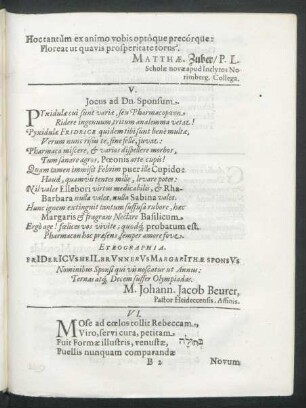 Hoc tantûm ex animo vobis optôque precórque:
Floreat ut quavis prosperitate torus.
MATTHÆ. Zuber / P. L.
Scholæ novæ apud Inclytos No-
rimberg. Collega.
V.
Jocus ad Dn. Sponsum.
Pyxidulæ cui sunt variæ, seu Pharmacopœum
Ridere ingenuum tritum axalemma vetat!
Pyxidulæ FRIDRICE quidem tibi sunt benè multæ,
Verum nunc risu te, sine felle, juvat:
Pharmaca miscere, & varios dispellere morbos,
Tum sanare ægros, Pœonis arte cupis!
Quam tamen immisit Febrim puer ille Cupido:
Haud, quamvis tentes mille, levare potes:
Nil valet Ellebori virtus medicabilis, & Rha-
Barbara nulla valet, nulla Sabina valet.
Hunc ignem extinguit tantum suffusa rubore, hæc
Margaris & fragrans Nectare Basilicum.
Ergò age! felices vos vivite; quodq; probatum est.
Pharmacum hoc præsens semper amore fove.
ETEOGRAPHIA.
FRIDERICVS HEIL, BRVNNERVS MARGARITHÆ SPONSVS
Nominibus Sponsi qui vis noscatur ut Annus:
Ternas atq; Decem suffer Olympiadas.
M. Johann. Jacob Beurer,
Pastor Huideccensis. Affinis.
VI.
Mose ad cœlos tollit Rebeccam,
Viro, servi cura, petitam.
Fuit Formæ illustris, venustæ,
Puellis nunquam comparandæ
בתולה
B 2 Novum